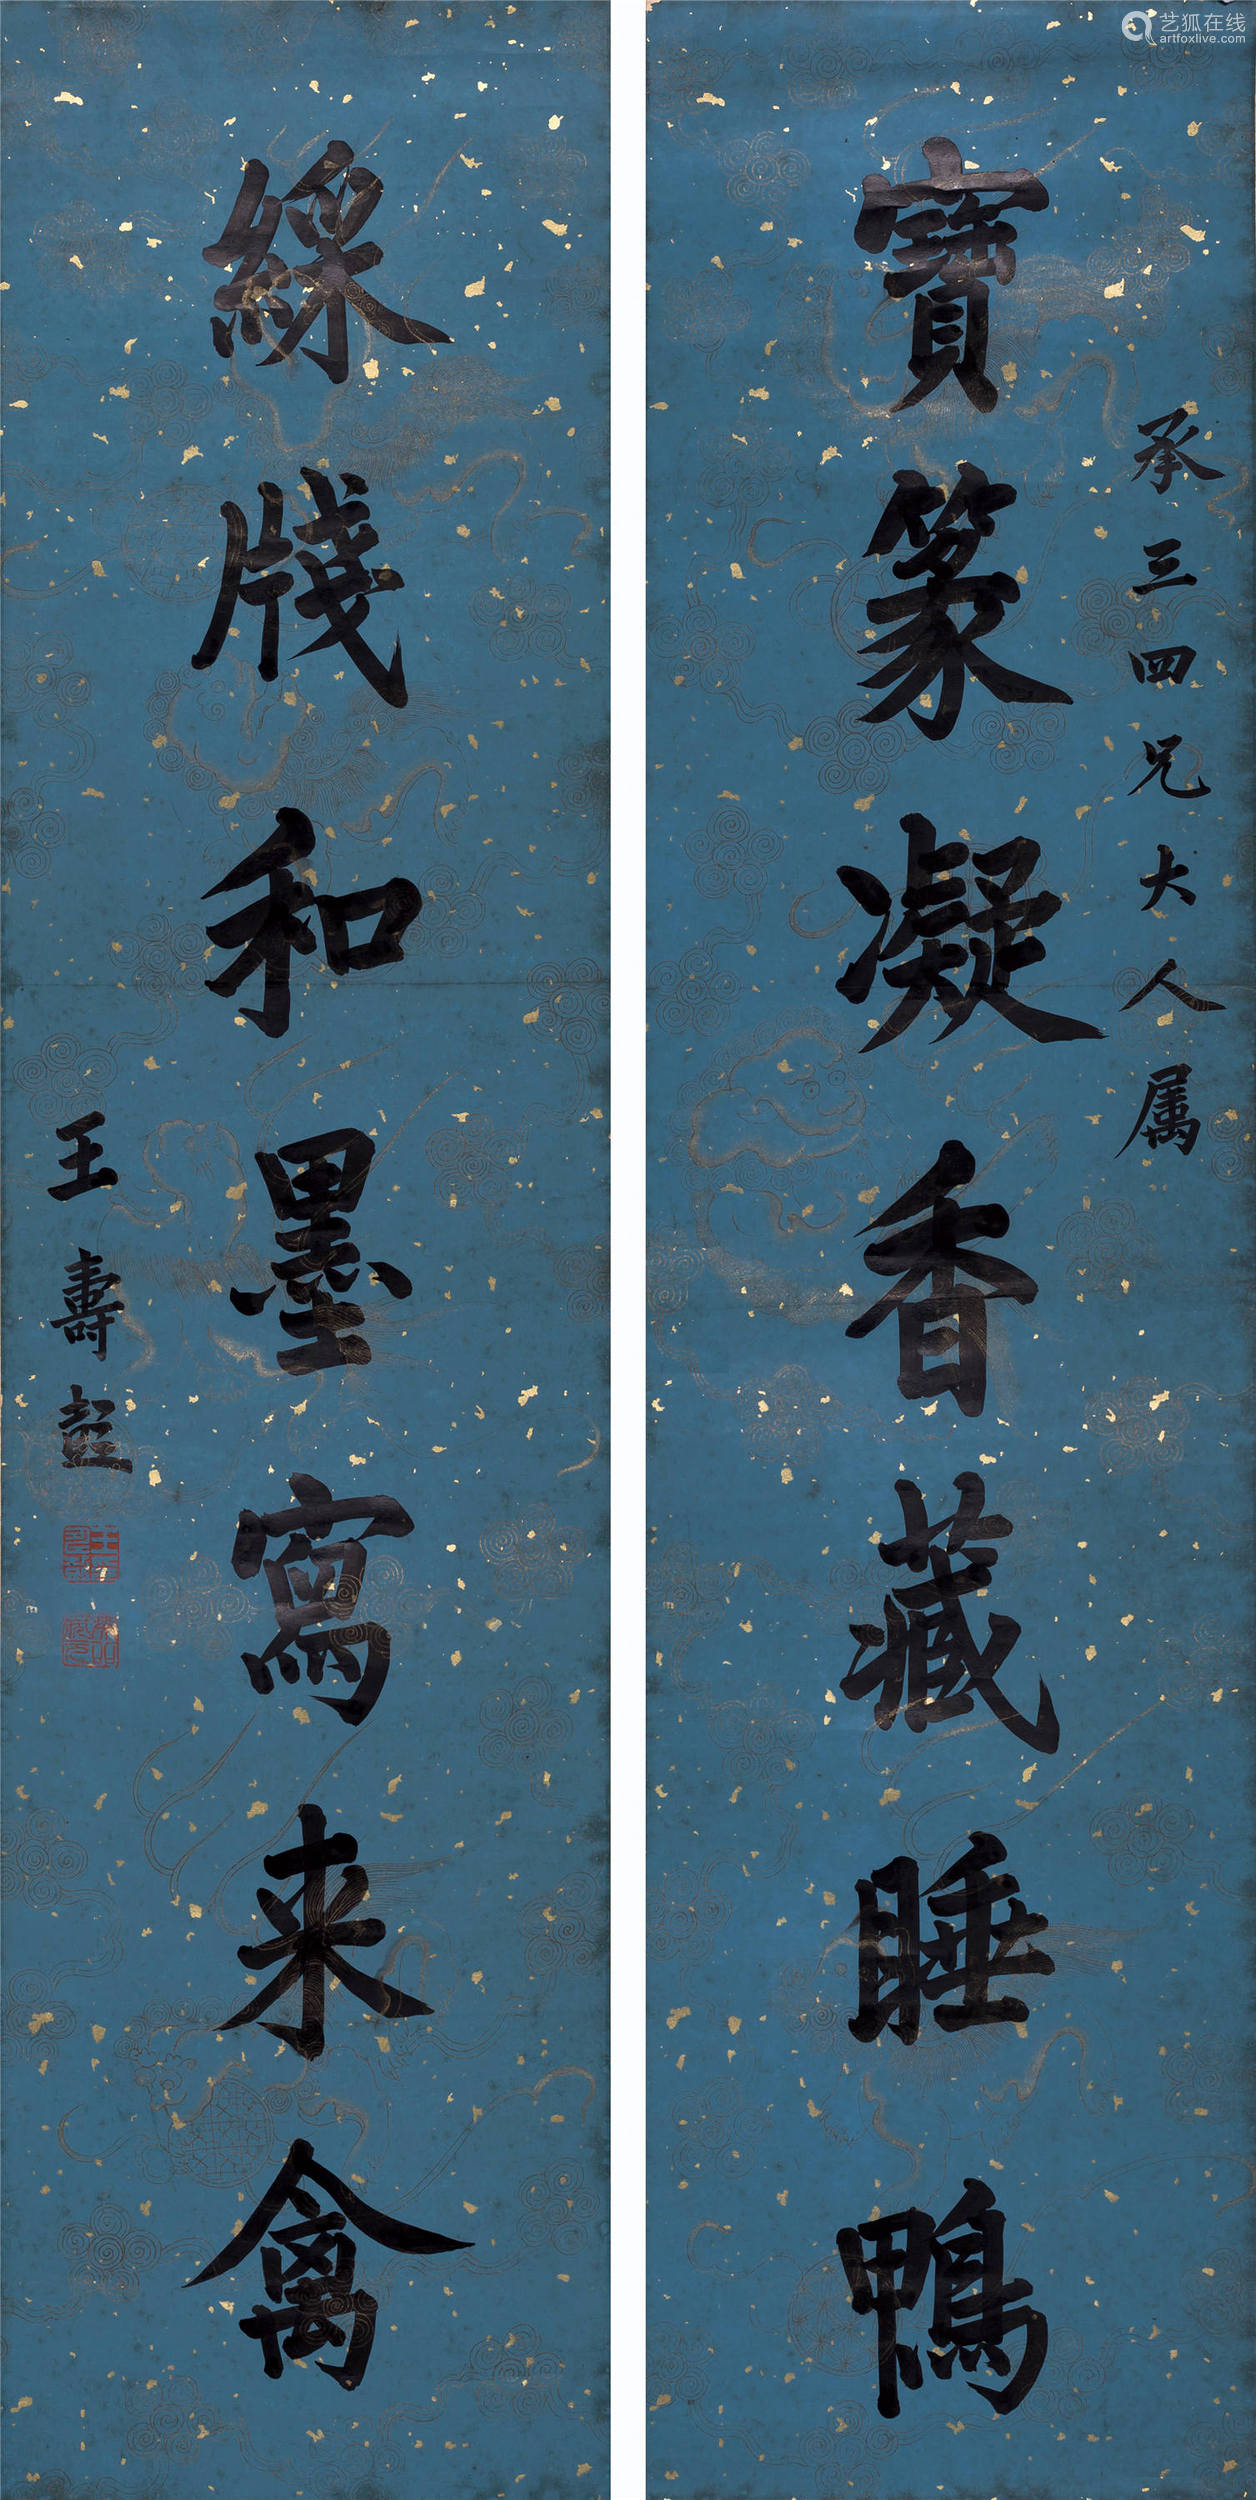 艺狐在线
artfoxlive.com
承三四兄大人属
寶篆凝香藏睡鴨
綵牋和墨寫来禽
王壽彭